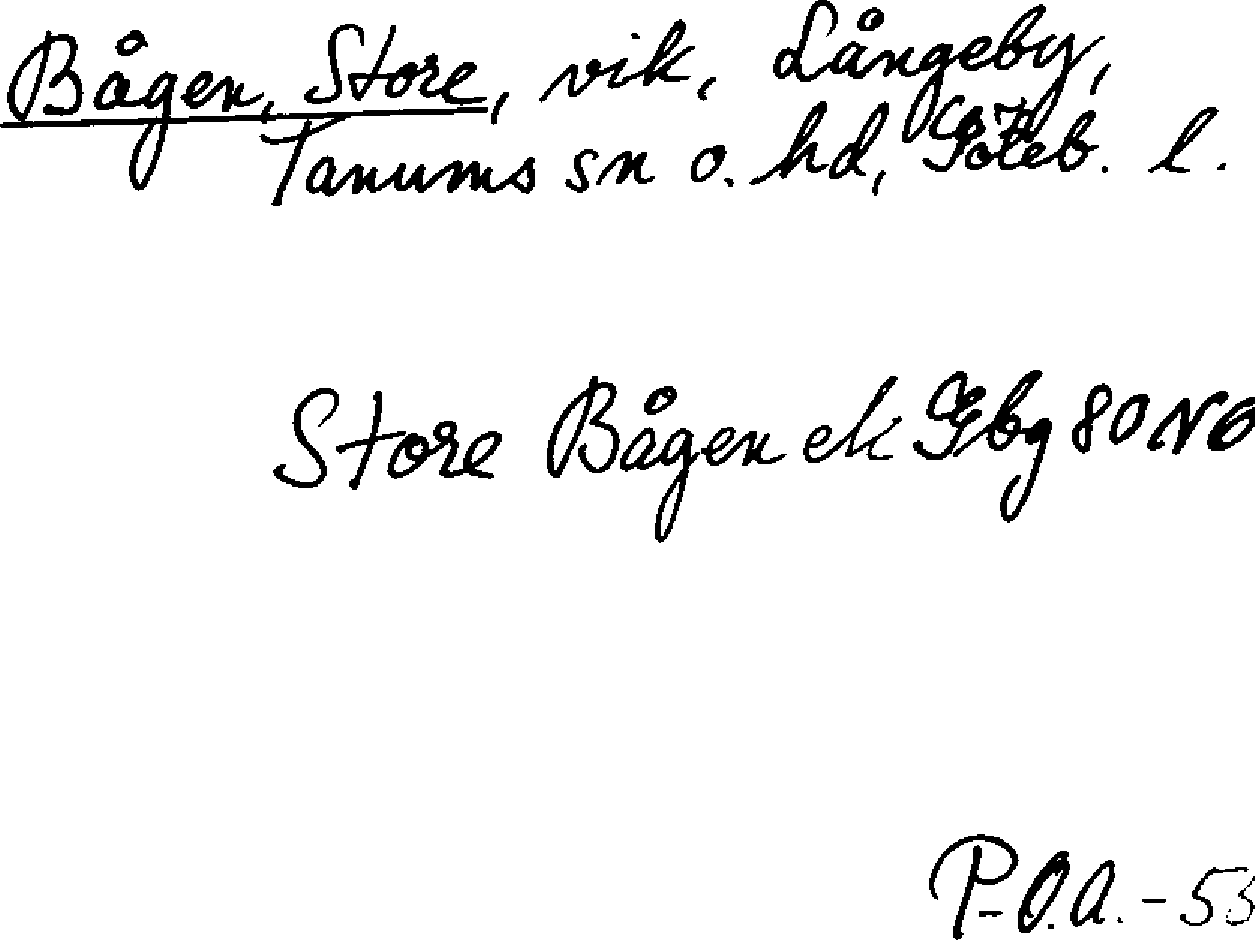 Bågen, Store, vik, Långeby,
Tanums sn o. hd, Göteb. l.
Store Bågen ek Gbg 80 NO
P-O.A. - 53